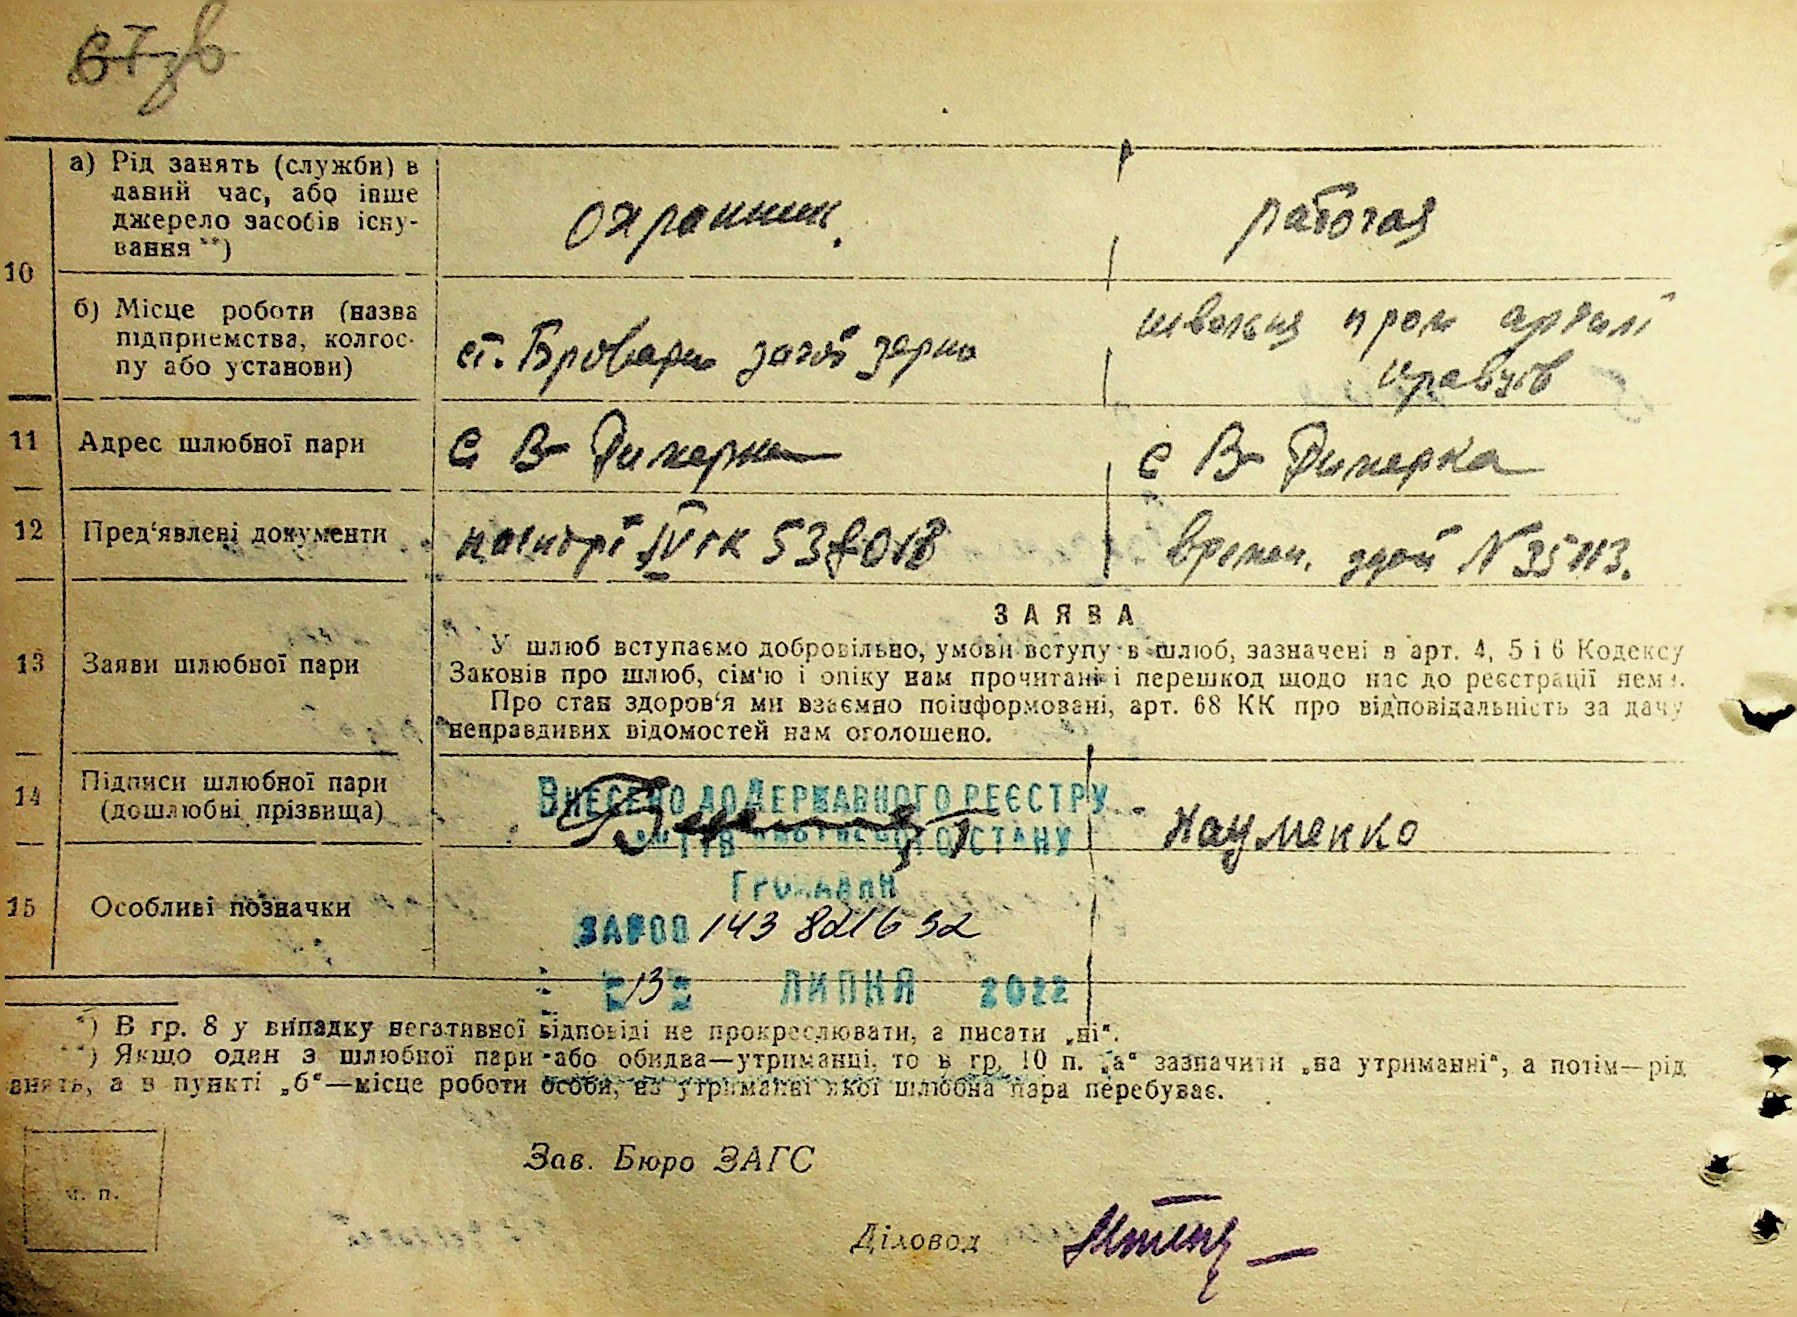 67зв
10
а) Рід занять (служби) в
даний час, або інше
джерело засобів існу-
вання **)
охранник.
рабочая
б) Місце роботи (назва
підприємства, колгос-
пу або установи)
ст. Бровари загот зерно
швальня пром артілі
кравців
11 Адрес шлюбної пари
с В-Димерка
с В-Димерка
12 Пред'явлені документи
паспорт IV ГК
времен. удост N 35113.
13 Заяви шлюбної пари
ЗАЯВА
У шлюб вступаємо добровільно, умови вступу в шлюб, зазначені в арт. 4, 5 і 6 Кодексу
Законів про шлюб, сім'ю і опіку нам прочитані і перешкод щодо нас до реєстрації нема.
Про стан здоров'я ми взаємно поінформовані, арт. 68 КК про відповідальність за дачу
неправдивих відомостей нам оголошено.
14 Підписи шлюбної пари
(дошлюбні прізвища)
Внесено до Державного реєстру
актів цивільного стану
громадян
Науменко
15 Особливі позначки
143 821632
13 липня 2022
*) В гр. 8 у випадку негативної відповіді не прокреслювати, а писати „ні“.
**) Якщо один з шлюбної пари або обидва—утриманці, то в гр. 10 п. „а“ зазначити „на утриманні“, а потім—рід
анять, а в пункті „б“—місце роботи особи, на утриманні якої шлюбна пара перебуває.
м. п.
Зав. Бюро ЗАГС
Діловод